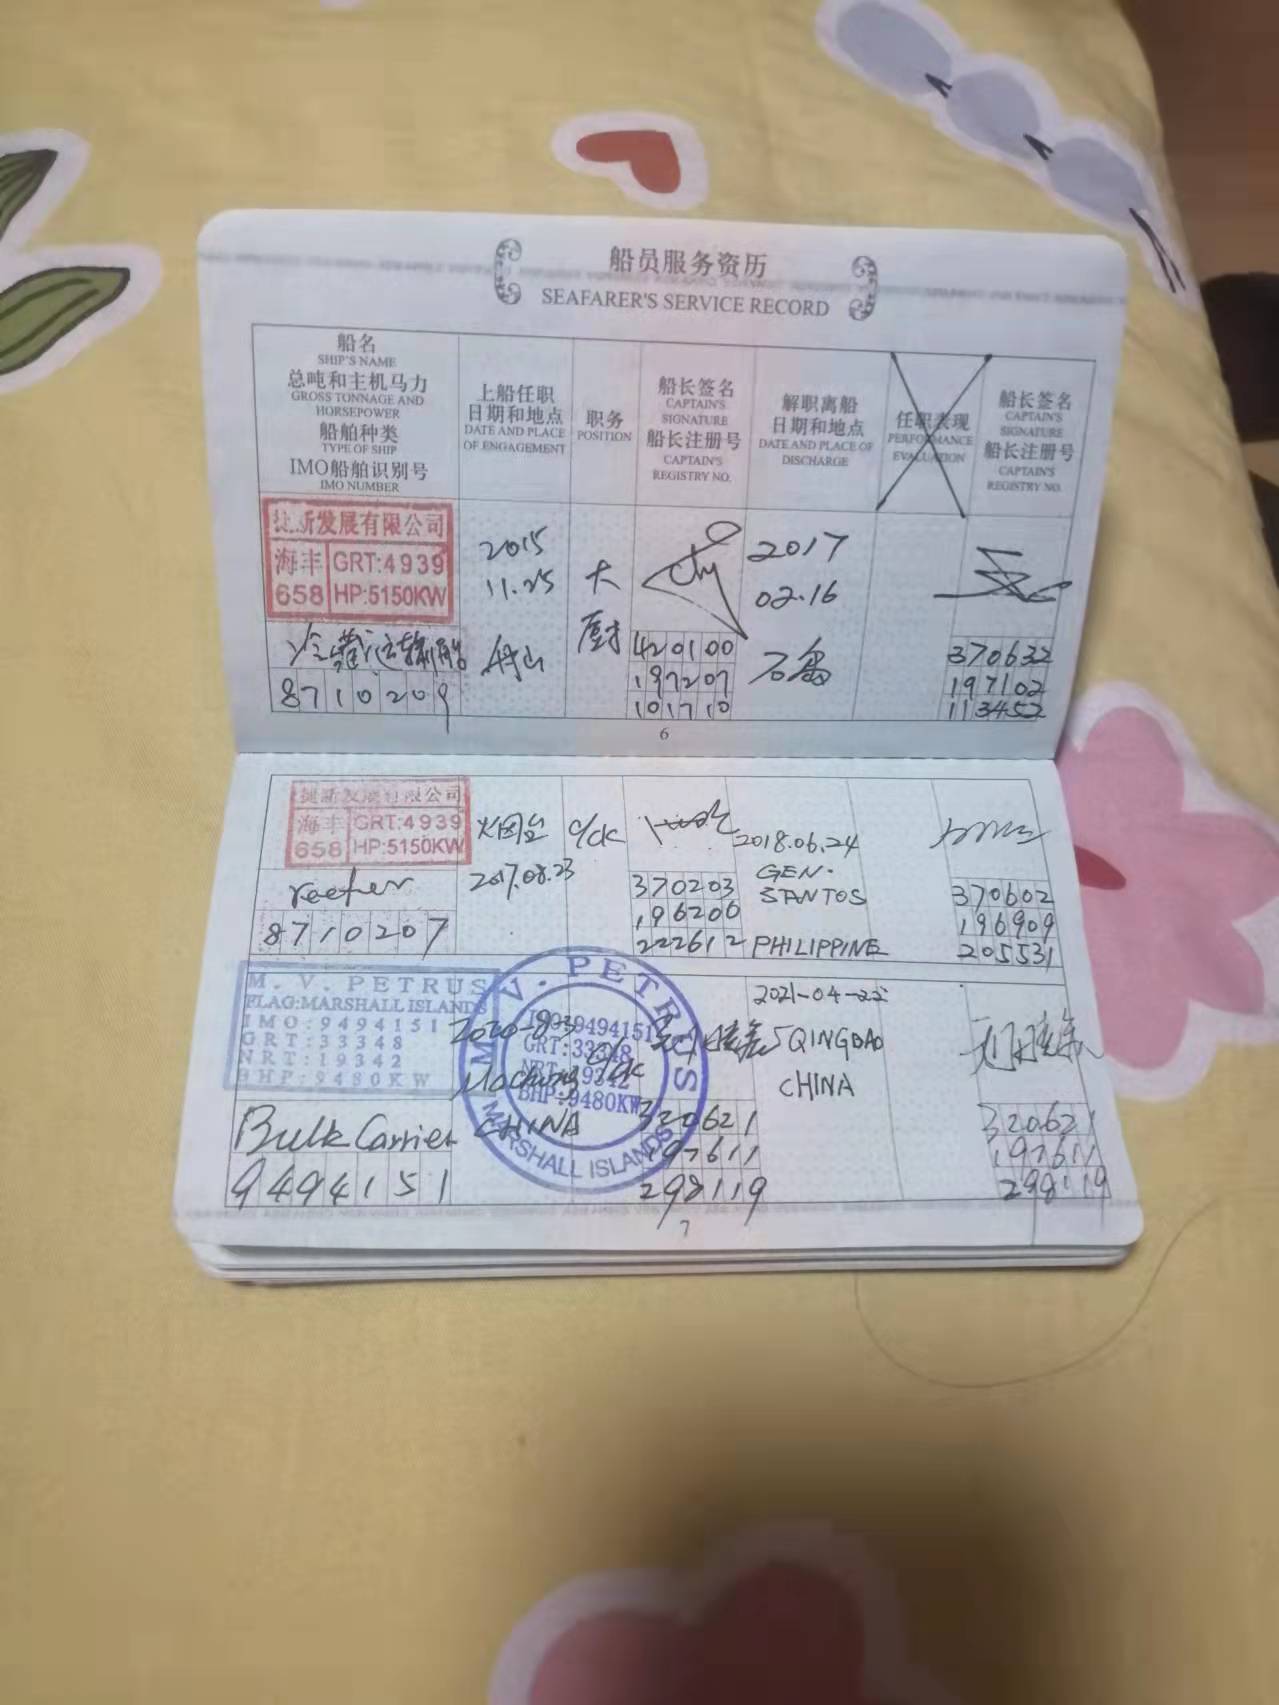 船员服务资历
SEAFARER'S SERVICE RECORD
船名
SHIP'S NAME
总吨和主机马力
GROSS TONNAGE AND
HORSEPOWER
船舶种类
TYPE OF SHIP
IMO船舶识别号
IMO NUMBER
上船任职
日期和地点
DATE AND PLACE
OF ENGAGEMENT
职务
POSITION
船长签名
CAPTAIN'S
SIGNATURE
船长注册号
CAPTAIN'S
REGISTRY NO.
解职离船
日期和地点
DATE AND PLACE OF
DISCHARGE
任职表现
PERFORMANCE
EVALUATION
船长签名
CAPTAIN'S
SIGNATURE
船长注册号
CAPTAIN'S
REGISTRY NO.
捷新发展有限公司
海丰 GRT:4939
658 HP:5150KW
冷藏运输船
8710209
2015
11.25
舟山
大
厨
420100
197207
101710
2017
02.16
石岛
370632
197102
113452
6
捷新发展有限公司
海丰 GRT:4939
658 HP:5150KW
reefer
8710207
烟台
2017.08.23
c/ck
370203
196206
222612
2018.06.24
GEN.
SANTOS
PHILIPPINE
370602
196909
205531
M. V. PETRUS
FLAG:MARSHALL ISLANDS
IMO:9494151
GRT:33348
NRT:19342
BHP:9480KW
Bulk Carrier
9494151
CHINA
M. V. PETRUS
IMO:9494151
GRT:33348
NRT:19342
BHP:9480KW
MARSHALL ISLANDS
c/ck
320621
197611
298119
2021-04-22
QINGDAO
CHINA
320621
197611
298119
7